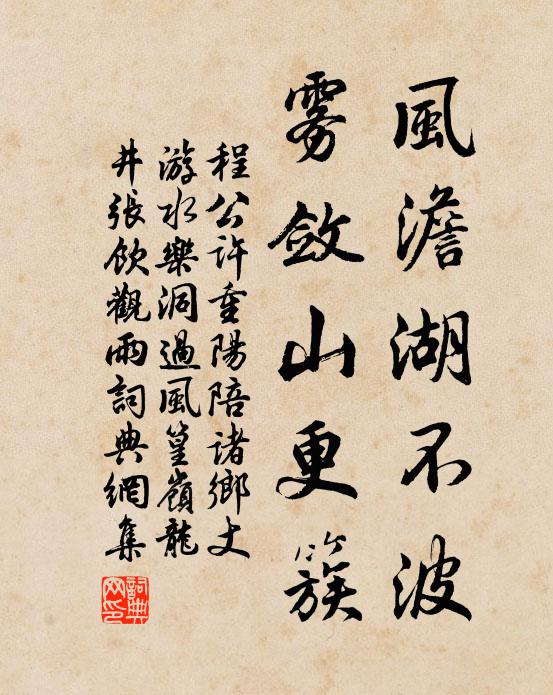 風澹湖不波
雾斂山更簇
程公許重陽陪諸鄉丈
游水樂洞過風篁嶺龍
井張飲觀雨詞典網集
詞典網印